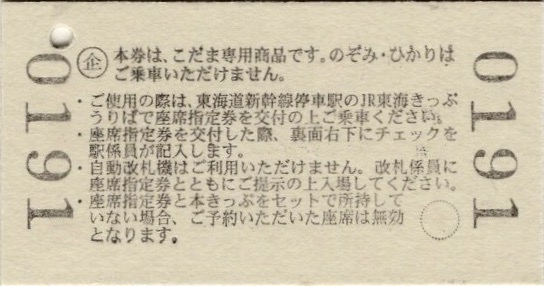 0191
企 本券は、こだま専用商品です。のぞみ・ひかりは
ご乗車いただけません。
・ご使用の際は、東海道新幹線停車駅のJR東海きっぷ
うりばで座席指定券を交付の上ご乗車ください。
・座席指定券を交付した際、裏面右下にチェックを
駅係員が記入します。
・自動改札機はご利用いただけません。改札係員に
座席指定券とともにご提示の上入場してください。
・座席指定券と本きっぷをセットで所持して
いない場合、ご予約いただいた座席は無効
となります。
0191